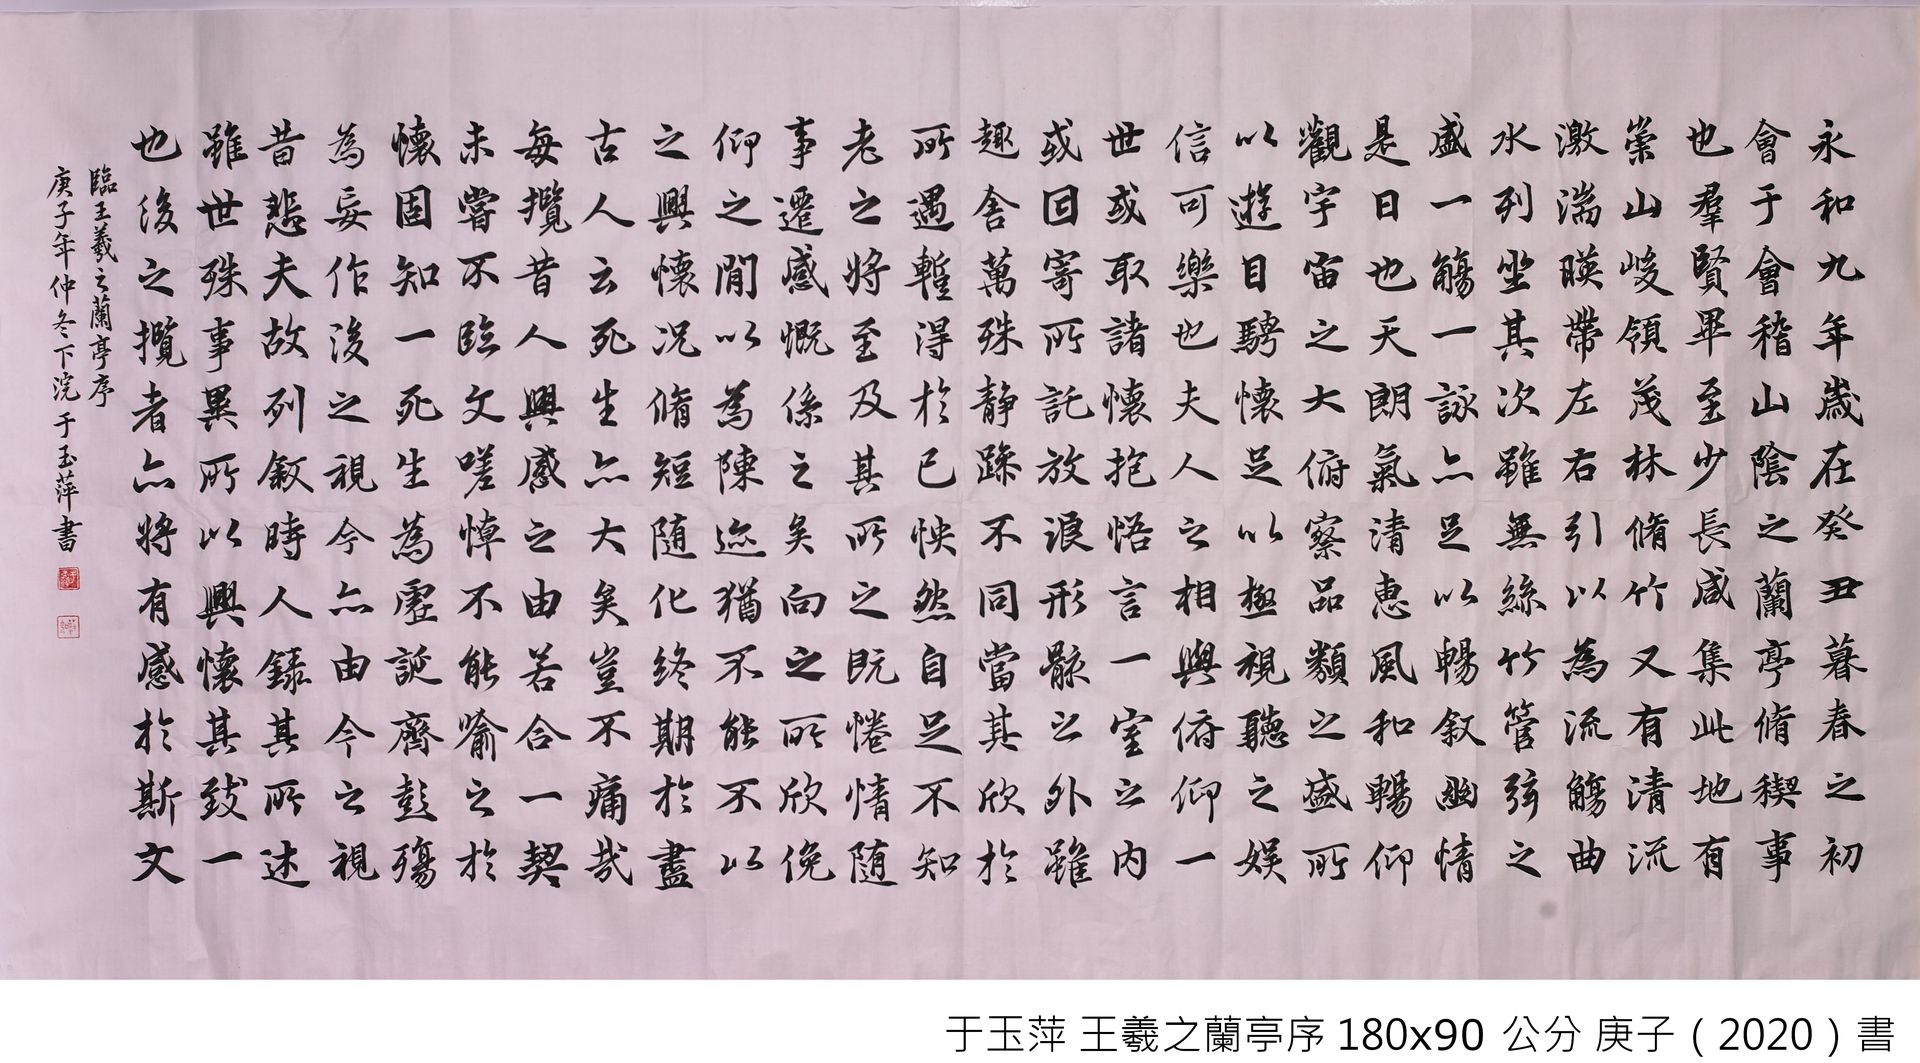 永和九年歲在癸丑暮春之初
會于會稽山陰之蘭亭脩稧事
也羣賢畢至少長咸集此地有
崇山峻領茂林脩竹又有清流
激湍暎帶左右引以為流觴曲
水列坐其次雖無絲竹管弦之
盛一觴一詠亦足以暢敘幽情
是日也天朗氣清惠風和暢仰
觀宇宙之大俯察品類之盛所
以遊目騁懷足以極視聽之娛
信可樂也夫人之相與俯仰一
世或取諸懷抱悟言一室之內
或因寄所託放浪形骸之外雖
趣舍萬殊静躁不同當其欣於
所遇蹔得於己怏然自足不知
老之將至及其所之既惓情随
事遷感慨係之矣向之所欣俛
仰之閒以為陳迹猶不能不以
之興懷况脩短随化終期於盡
古人云死生亦大矣豈不痛哉
每攬昔人興感之由若合一契
未嘗不臨文嗟悼不能喻之於
懷固知一死生為虛誕齊彭殤
為妄作後之視今亦由今之視
昔悲夫故列敘時人錄其所述
雖世殊事異所以興懷其致一
也後之攬者亦將有感於斯文
臨王羲之蘭亭序
庚子年仲冬下浣于玉萍書
于玉萍 王羲之蘭亭序 180x90 公分 庚子（2020）書